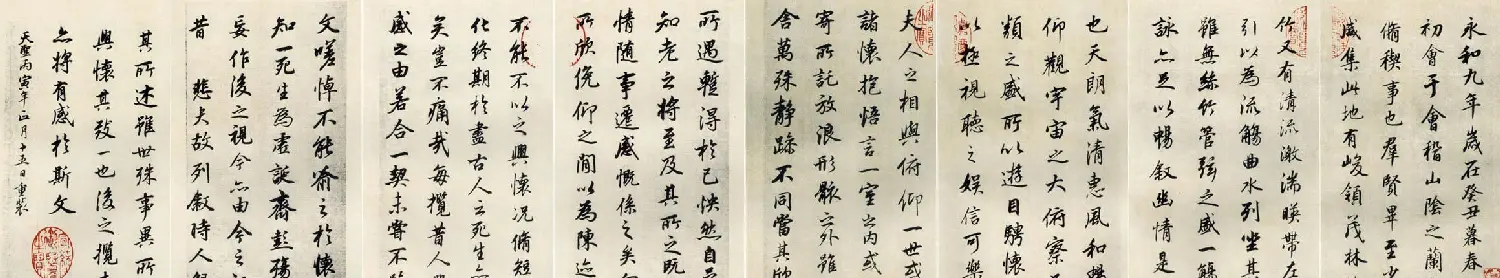 永和九年歲在癸丑暮春
初會于會稽山陰之蘭
脩稧事也羣賢畢至少
咸集此地有峻領茂林
竹又有清流激湍暎帶左
引以為流觴曲水列坐其
雖無絲竹管弦之盛一觴
詠亦足以暢敘幽情是
也天朗氣清惠風和暢
仰觀宇宙之大俯察
類之盛所以遊目騁懷
以極視聽之娛信可樂
夫人之相與俯仰一世或
諸懷抱悟言一室之內或
寄所託放浪形骸之外雖
舍萬殊靜躁不同當其欣
所遇蹔得於己怏然自足
知老之將至及其所之既
情隨事遷感慨係之矣向
所欣俛仰之間以為陳迹
不能不以之興懷況脩短
化終期於盡古人云死生亦
矣豈不痛哉每攬昔人
感之由若合一契未嘗不臨
文嗟悼不能喻之於懷
知一死生為虛誕齊彭殤
妄作後之視今亦由今之視
昔 悲夫故列敘時人錄
其所述雖世殊事異所
興懷其致一也後之攬者
亦將有感於斯文
天聖丙寅年正月十五日重裝